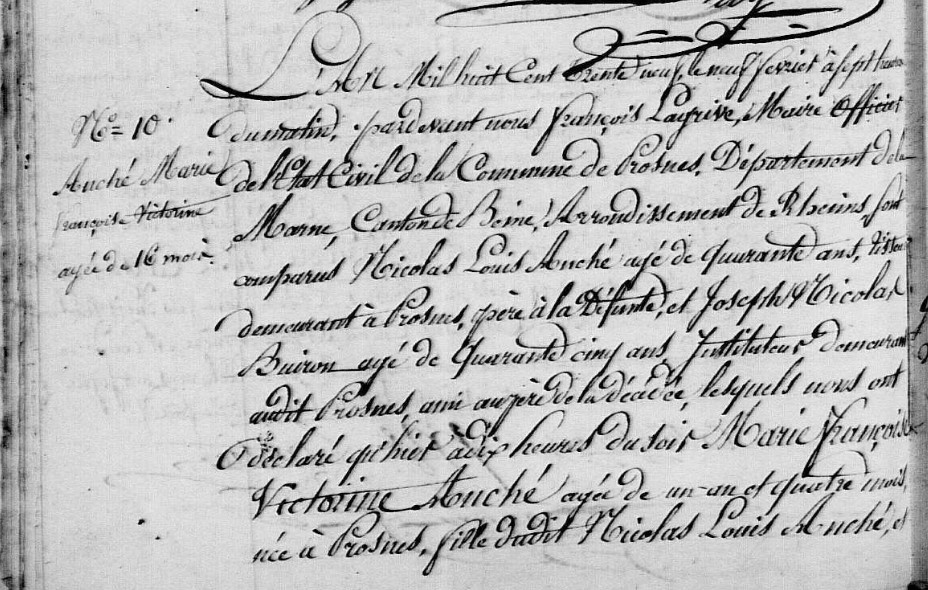 N.o = 10.
Auché Marie
françoise Victorine
agée de 16 mois.
L'An Mil huit Cent trente neuf, le neuf fevrier à sept heures
du matin, pardevant nous françois Lagrive, Maire Officier
de l'Etat Civil de la Commune de Prosnes, Département de la
Marne, Canton de Beine, Arrondissement de Rheims, sont
comparus Nicolas Louis Auché agé de quarante ans,
demeurant à Prosnes, père à la Défunte, et Joseph Nicolas
Buiron agé de quarante cinq ans, Instituteur, demeurant
audit Prosnes, ami au père de la décédée, lesquels nous ont
déclaré qu'hier à dix heures du soir Marie françoise
Victorine Auché agée de un an et quatre mois,
née à Prosnes, fille dudit Nicolas Louis Auché, et